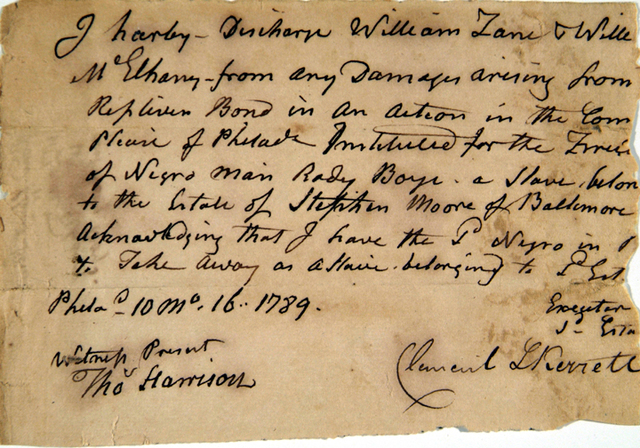 I harby Discharge William Zane & Wille
McElhany from any Damages arising from
Repliven Bond in an Action in the Com
Pleise of Philada Instituted for the
of Negro man Rady Boye a Slave belon
to the Estate of Stephen Moore of Baltimore
Acknowledging that I have the Sd Negro in P
& Take Away as a Slave belonging to Sd Est
Philad 10 Mo. 16.. 1789.
Exegetor
Sd Esta
Witness Present
Thos Harrison
Clement Skerrett